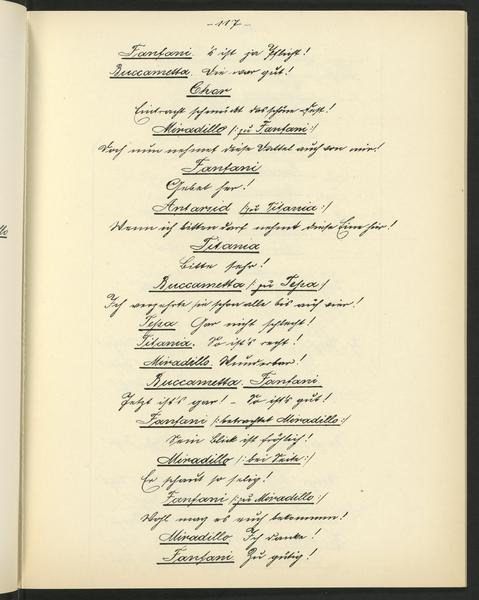 -117-
Fanfani. 's ist ja Pflicht!
Buccametta. Die war gut!
Chor
Eintracht schmückt das schöne Fest!
Miradillo /: zu Fanfani :/
Doch nun nehmet diese Dattel auch von mir!
Fanfani
Gebet her!
Antarsid /: zu Titania :/
Wenn ich bitten darf nehmt diese Eine hier!
Titania
Bitte sehr!
Buccametta /: zu Tessa :/
Ich verzehrte sie schon alle bis auf vier!
Tessa. Gar nicht schlecht!
Titania. So ist's recht!
Miradillo. Wunderbar!
Buccametta. Fanfani
Jetzt ist's gar! - So ist's gut!
Fanfani /: betrachtet Miradillo :/
Sein Blick ist fröhlich!
Miradillo /: bei Seite :/
Er schaut so selig!
Fanfani /: zu Miradillo :/
Wohl mag es euch bekommen!
Miradillo. Ich danke!
Fanfani. Zu gütig!